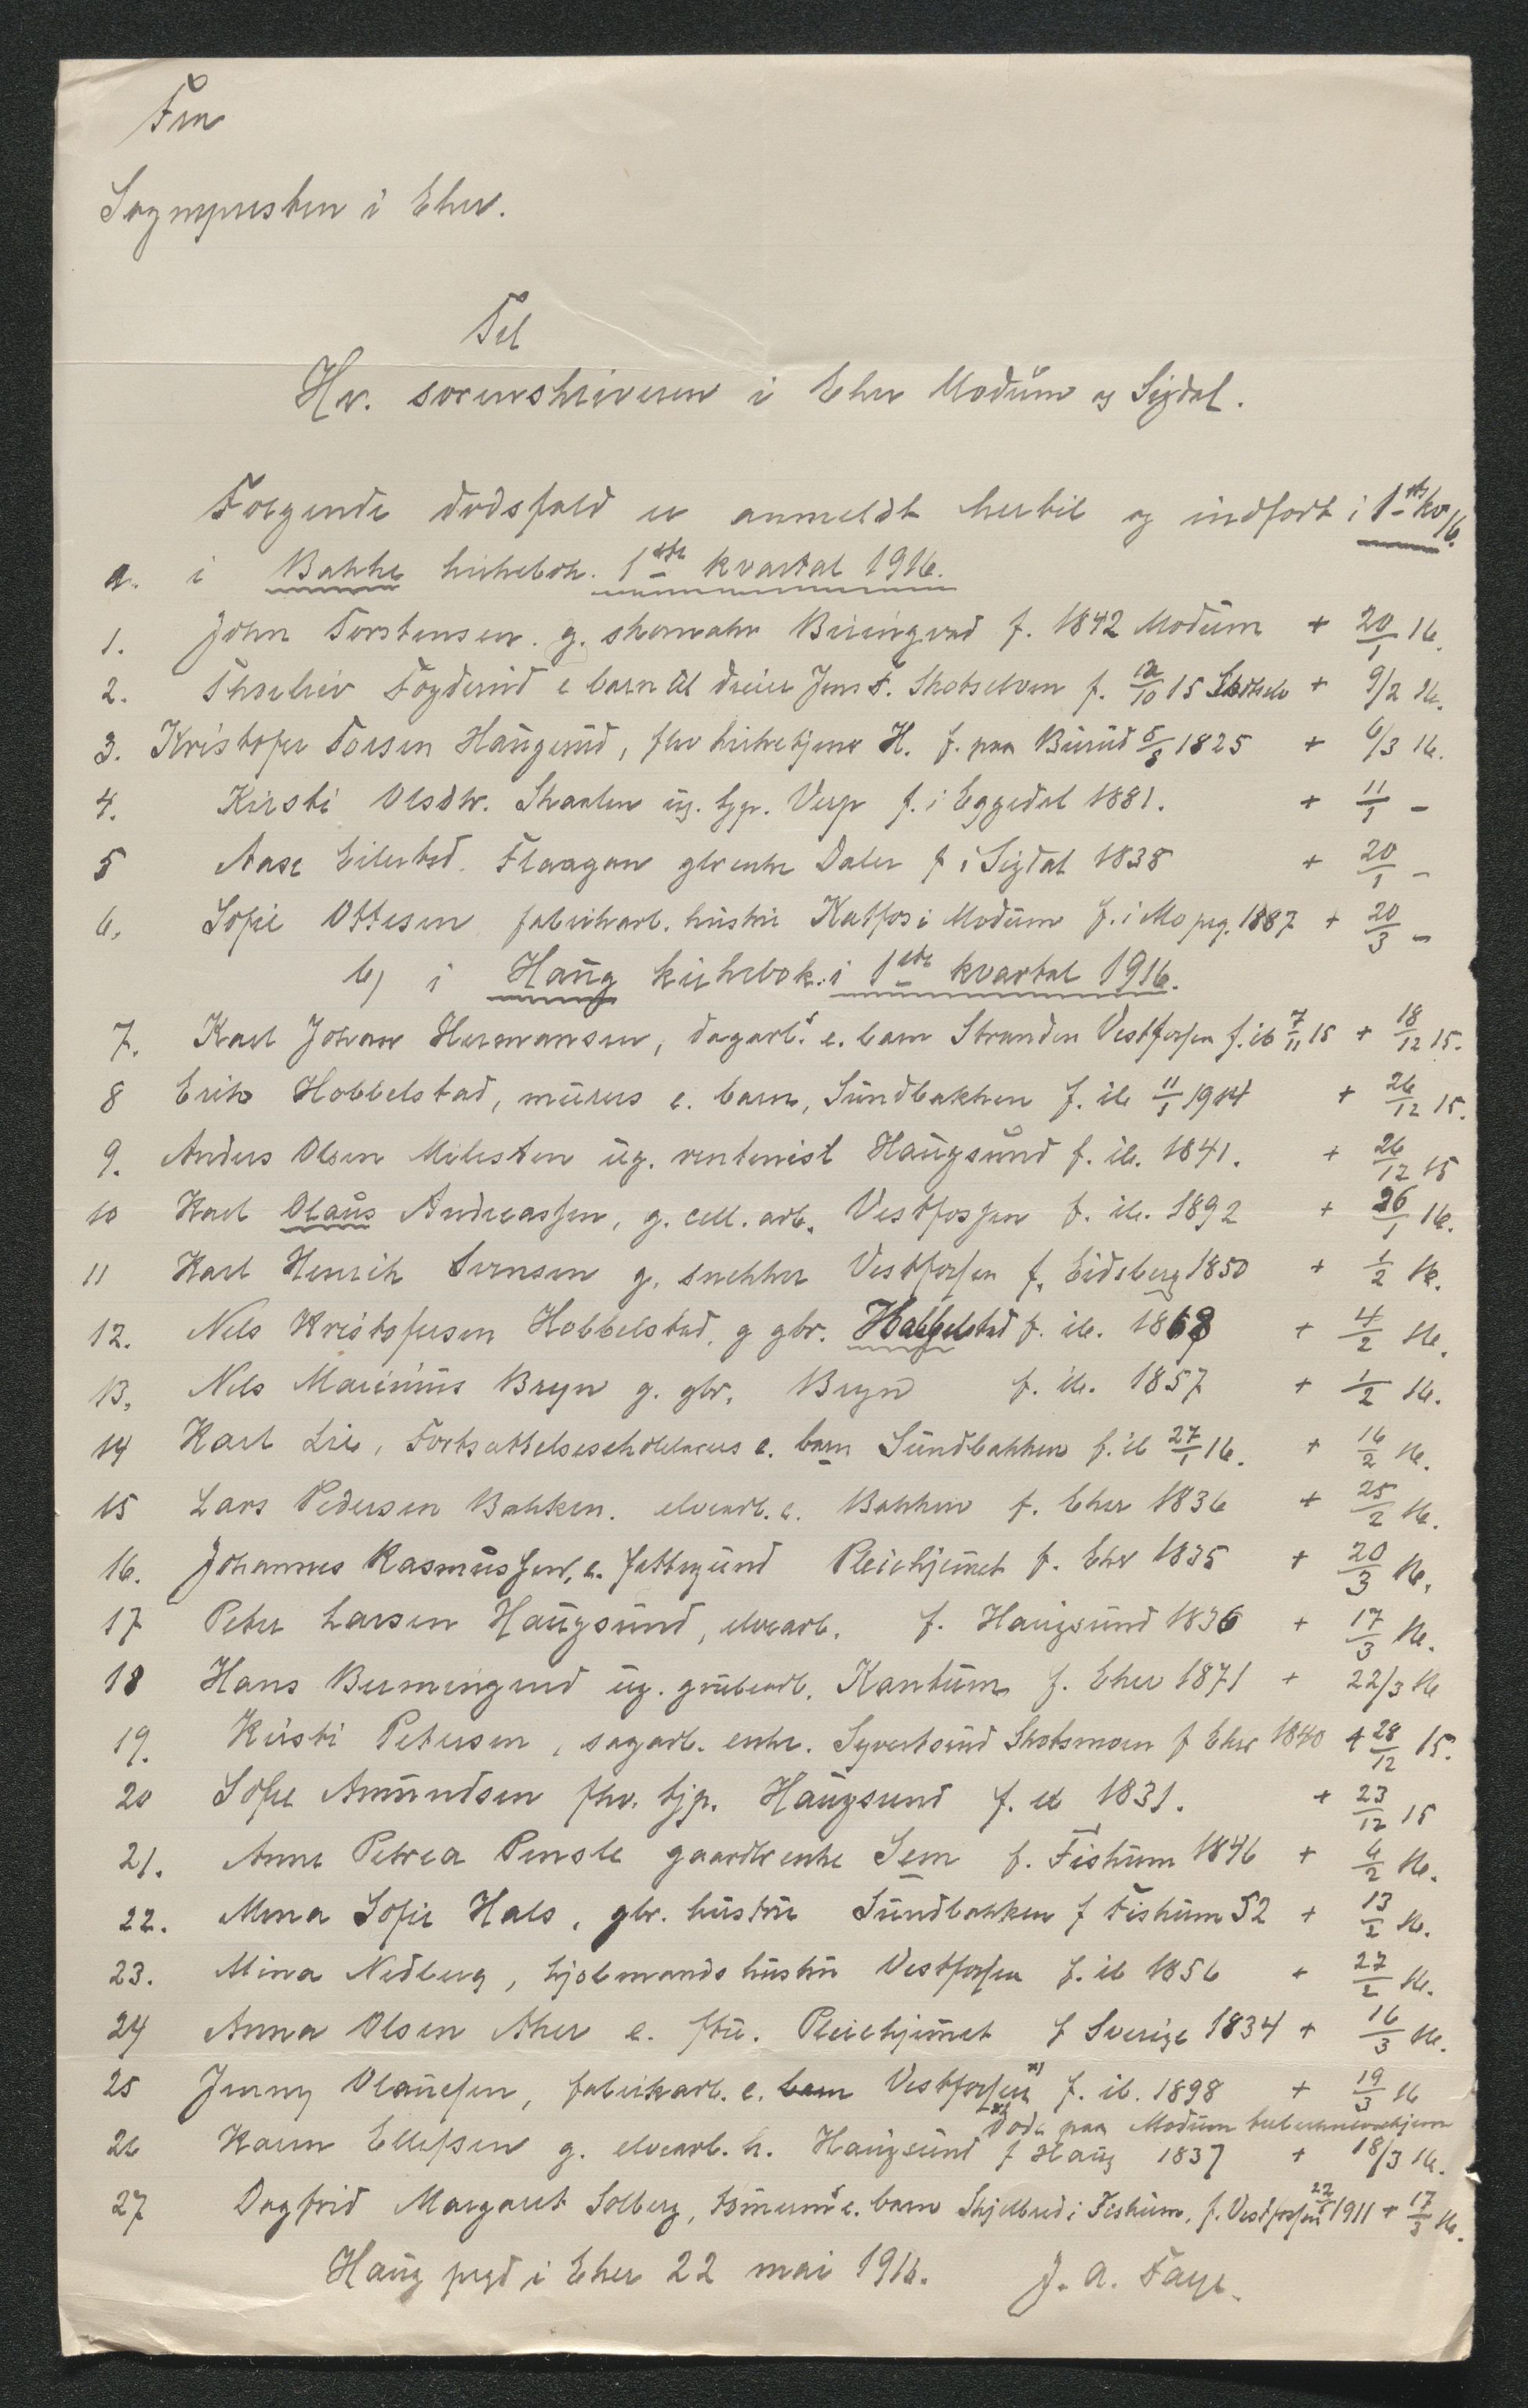 Fra
Sognepresten i Eker.
Til
Hr. sorenskriveren i Eker Modum og Sigdal.
Følgende dødsfald er anmeldt hertil og indført i 1ste kv 16.
a. i Bakke kirkebok. 1ste kvartal 1916.
1. John Torstensen. g. skomaker f. 1842 Modum + 20/1 16.
2. Thorleiv Fogderud e barn til dreier Jens F. Skotselven f. 12/10 15 Skotselv + 9/2 16.
3. Kristofer Torsen Haugerud, fhv kirketjener H. f. paa Burud 5/8 1825 + 6/3 16.
4. Kirsti Olsdtr. Skaalen ug. tjp. Verp f. i Eggedal 1881. + 11/1 -
5 Aase Eilertsd. Flaagan gbr enke Daler f i Sigdal 1838 + 20/1 -
6. Sofie Ottesen fabrikarb. hustru Katfos i Modum f. i Mo prg. 1887 + 20/3 -
b) i Haug kirkebok: i 1ste kvartal 1916.
7. Karl Johan Hermansen, dagarb.s e. barn Stranden Vestfossen f. ib 7/11 15 + 18/12 15.
8 Erik Hobbelstad, murers e. barn, Sundbakken f. ib 11/1 1914 + 26/12 15.
9. Anders Olsen Milesten ug. rentenist Haugsund f. ib. 1841. + 26/12 15
10 Karl Olaus Andreassen, g. cell. arb. Vestfossen f. ib. 1892 + 26/1 16.
11 Karl Henrik Svensen g. snekker Vestfossen f. Eidsberg 1850 + 1/2 16.
12. Nels Kristofersen Hobbelstad, g gbr. Hobbelstad f. ib. 1868 + 4/2 16.
13. Nels Marinius Bryn g. gbr. Bryn f. ib. 1857 + 1/2 16.
14 Karl Lie, Fortsættelsesskolelærers e. barn Sundbakken f. ib 27/1 16. + 16/2 16.
15 Lars Pedersen Bakken. elvearb. e. Bakken f. Eker 1836 + 25/2 16.
16. Johannes Rasmussen, e. fattigund Pleiehjemmet f. Eker 1835 + 20/3 16.
17 Peter Larsen Haugsund, elvearb. f. Haugsund 1836 + 17/3 16.
18 Hans ug. grubearb. Kantum f. Eker 1871 + 22/3 16
19. Kirsti Petersen, sagarb. enke. Syvertsrud Skotsmoen f Eker 1840 + 28/12 15.
20 Sofie Amundsen fhv. tjp. Haugsund f. ib 1831. + 23/12 15
21. Anne Petrea Temsle gaardbr enke Sem f. Fiskum 1846 + 6/2 16.
22. Mina Sofie Hals, gbr. hustru Sundbakken f Fiskum 52 + 13/2 16.
23. Mina Nedberg, hjelmands hustru Vestfossen f. ib 1856 + 27/2 16.
24 Anna Olsen Aker e. ftu. Pleiehjemmet f Sverige 1834 + 16/3 16.
25 Jenny Olausen, fabrikarb. e. barn Vestfossen x) f. ib. 1898 + 19/3 16
x) Døde paa Modum tuberkulosehjem
26 Karen Ellefsen g. elvearb. h. Haugsund f Haug 1837 + 18/3 16.
27 Dagfrid Margaret Solberg, tømmerms e. barn Skjelbred i Fiskum, f. Vestfossen 22/5 1911 + 17/3 16.
Haug prgd i Eker 22 mai 1916. J. A. Faye.